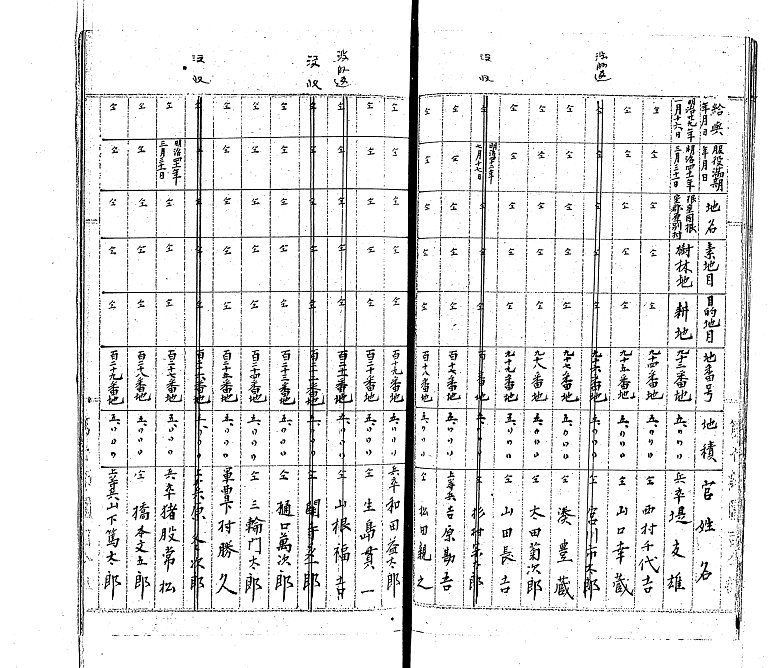 給與年月日 服役満期年月日 地名 素地目 目的地目 地番号 地積 官姓名
明治廿九年一月十六日 明治四十一年三月三十一日 樹林地 耕地 九十三番地 五、〇〇〇 兵卒 堤友雄
仝 仝 仝 仝 仝 九十四番地 五、〇〇〇 仝 西村千代吉
仝 仝 仝 仝 仝 九十五番地 五、〇〇〇 仝 山口幸蔵
没的返 仝 仝 仝 仝 仝 九十六番地 五、〇〇〇 仝 宮川市太郎
仝 仝 仝 仝 仝 九十七番地 五、〇〇〇 仝 湊豊蔵
仝 仝 仝 仝 仝 九十八番地 五、〇〇〇 仝 太田菊次郎
仝 仝 仝 仝 仝 九十九番地 五、〇〇〇 仝 山田長吉
没收 仝 明治四十二年七月十七日 仝 仝 仝 番地 五、〇〇〇 仝 杉村
仝 仝 仝 仝 仝 百十七番地 五、〇〇〇 上等兵 吉原勘吾
仝 仝 仝 仝 仝 百十八番地 五、〇〇〇 仝 松田親之
仝 仝 仝 仝 仝 百十九番地 五、〇〇〇 兵卒 和田益太郎
仝 仝 仝 仝 仝 百二十番地 五、〇〇〇 仝 生島貫一
没的返 仝 仝 仝 仝 仝 百二十一番地 五、〇〇〇 仝 山根福吉
没收 仝 仝 仝 仝 仝 百二十二番地 五、〇〇〇 仝
仝 仝 仝 仝 仝 百二十三番地 五、〇〇〇 仝 樋口萬次郎
仝 仝 仝 仝 仝 百二十四番地 五、〇〇〇 仝 三輪門太郎
仝 仝 仝 仝 仝 百二十五番地 五、〇〇〇 軍曹 下村勝久
没收 仝 仝 仝 仝 仝 百二十六番地 五、〇〇〇 上等兵 原
仝 明治四十一年三月三十一日 仝 仝 仝 百二十七番地 五、〇〇〇 兵卒 猪股常松
仝 仝 仝 仝 仝 百二十八番地 五、〇〇〇 仝 橋本文五郎
仝 仝 仝 仝 仝 百二十九番地 五、〇〇〇 上等兵 山下篤太郎